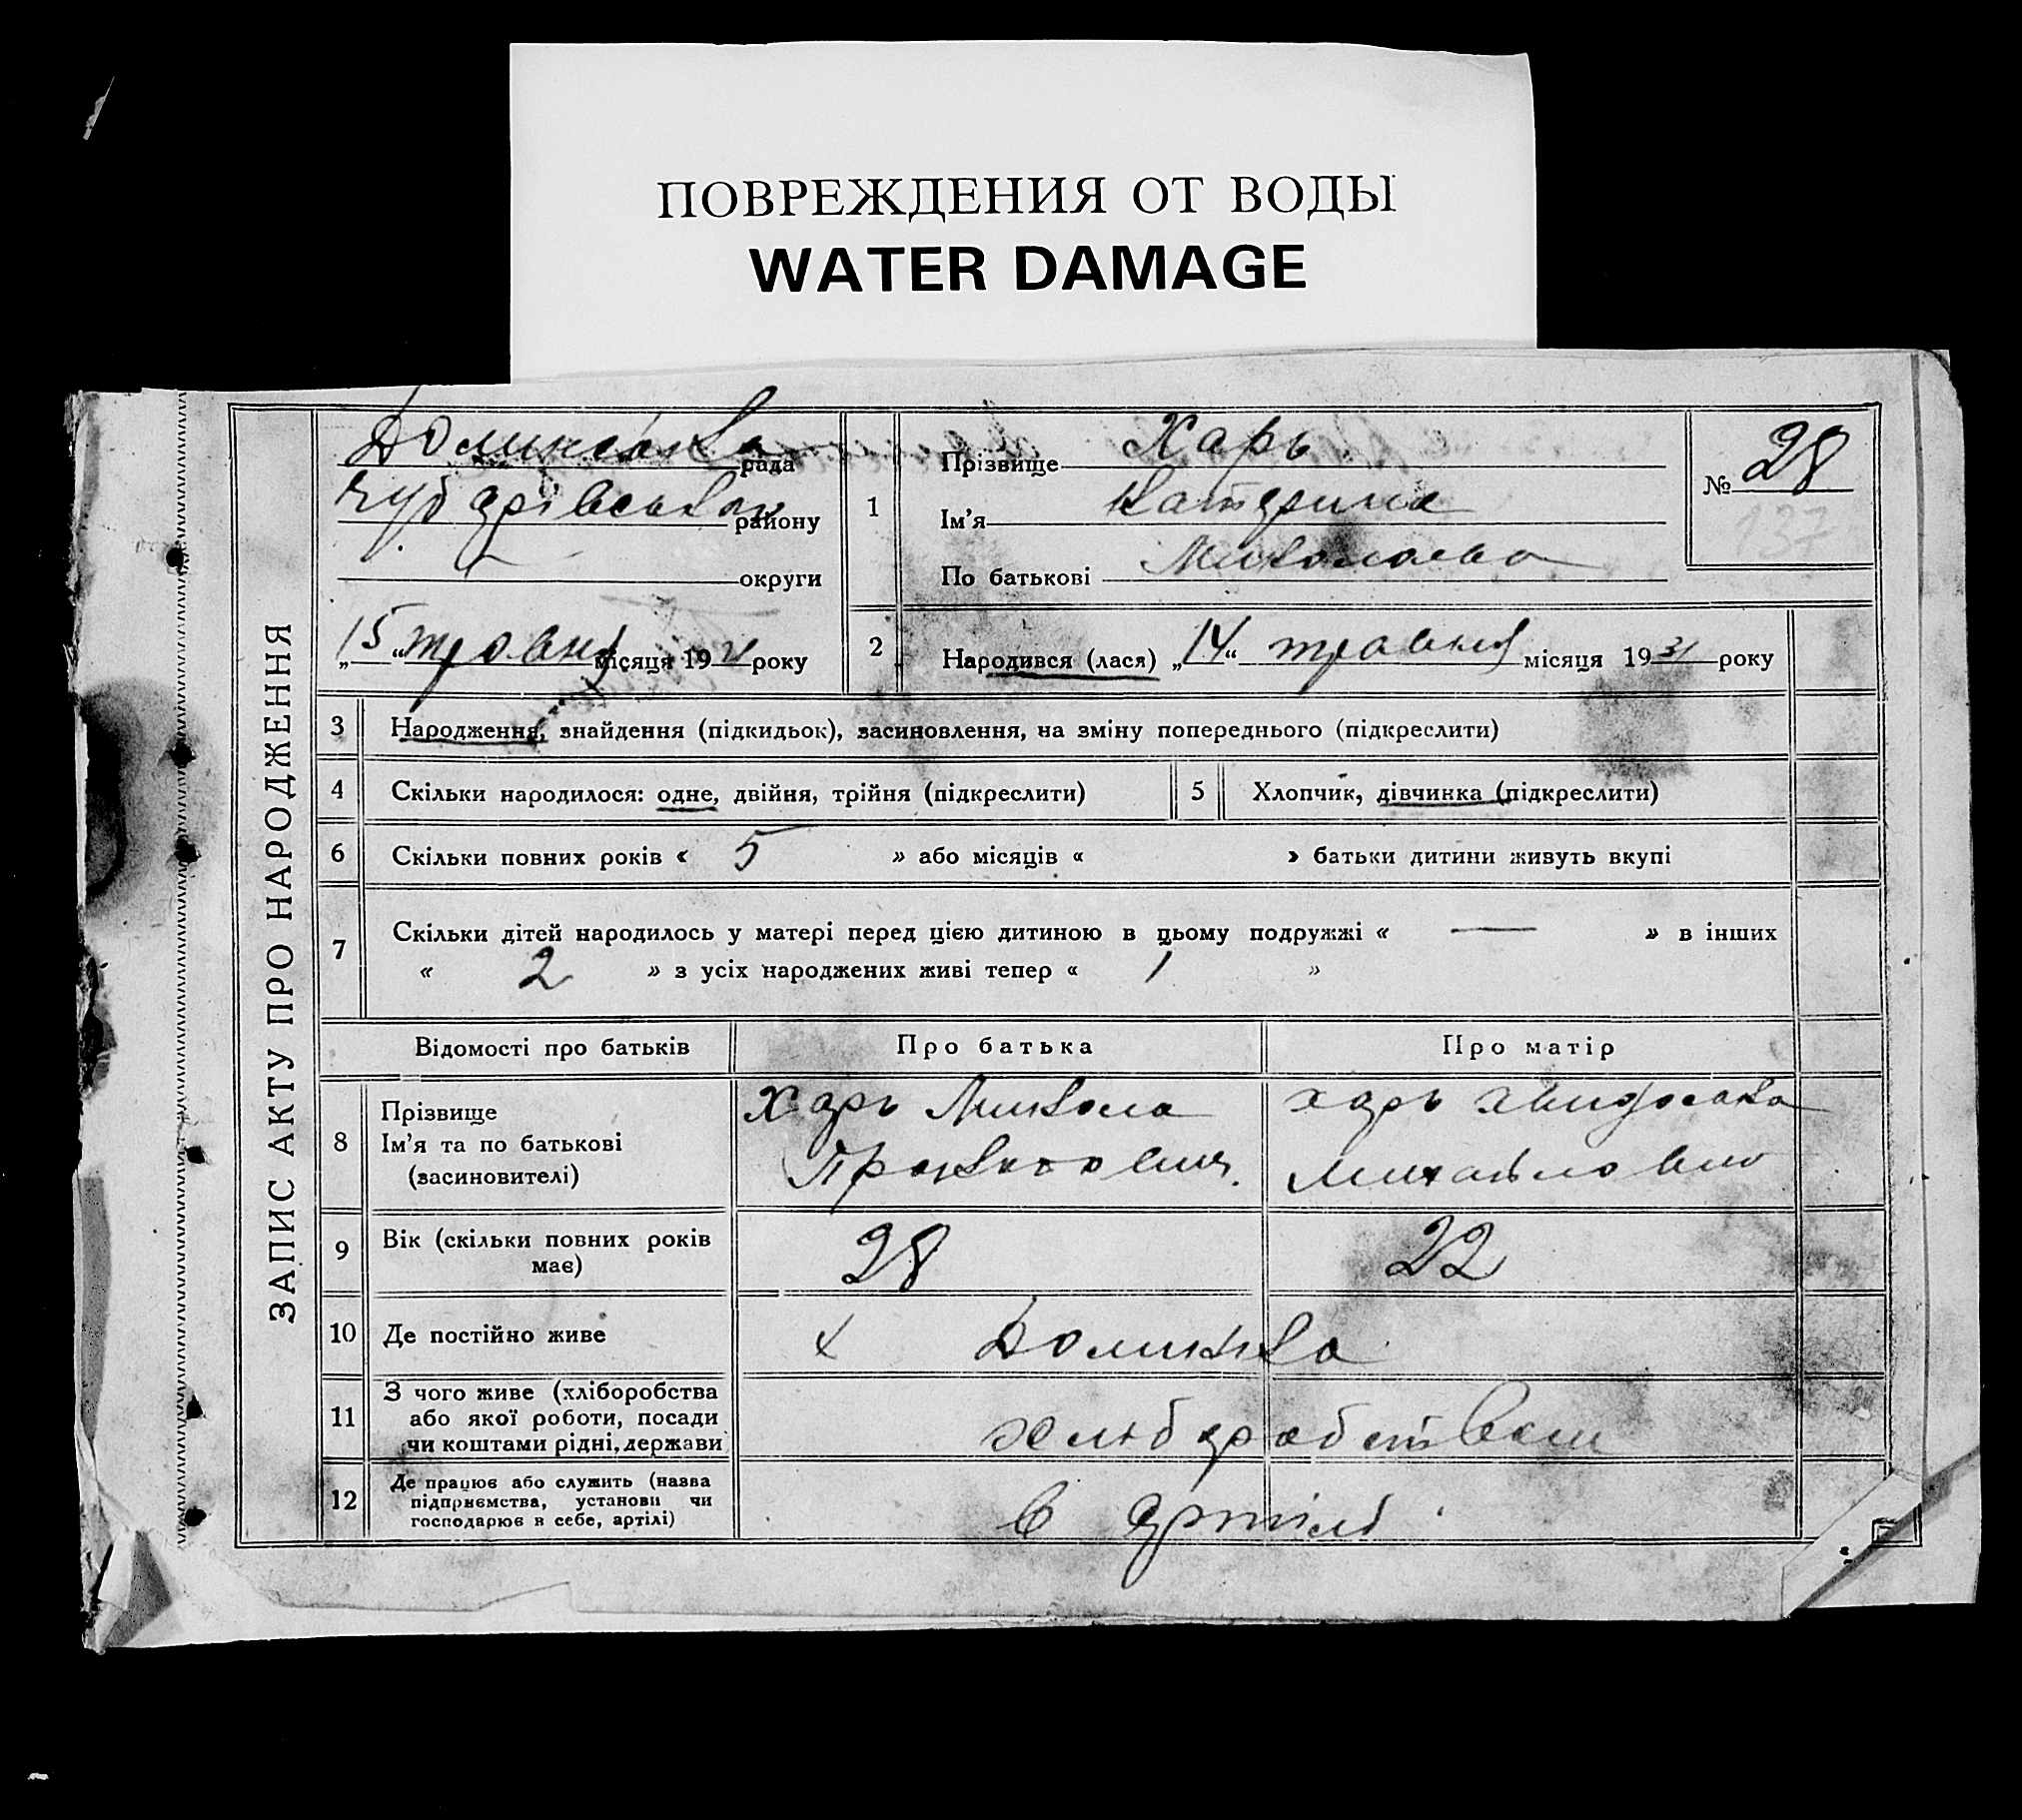 ПОВРЕЖДЕНИЯ ОТ ВОДЫ
WATER DAMAGE
ЗАПИС АКТУ ПРО НАРОДЖЕННЯ
рада
Чубарівського району
округи
„15“ травня місяця 1931 року
1
Прізвище Харь
Ім'я Катерина
По батькові Миколаєва
№ 28
137
2 Народився (лася) „14“ травня місяця 1931 року
3 Народження, знайдення (підкидьок), засиновлення, на зміну попереднього (підкреслити)
4 Скільки народилося: одне, двійня, трійня (підкреслити)
5 Хлопчик, дівчинка (підкреслити)
6 Скільки повних років « 5 » або місяців « » батьки дитини живуть вкупі
7 Скільки дітей народилось у матері перед цією дитиною в цьому подружжі « — » в інших
« 2 » з усіх народжених живі тепер « 1 »
Відомості про батьків Про батька Про матір
8 Прізвище
Ім'я та по батькові
(засиновителі)
Харь Микола
Харь
Михайловна
9 Вік (скільки повних років
має)
28 22
10 Де постійно живе
х Долинка
11 З чого живе (хліборобства
або якої роботи, посади
чи коштами рідні, держави
хліборобством
12 Де працює або служить (назва
підприємства, установи чи
господарює в себе, артілі)
в артілі